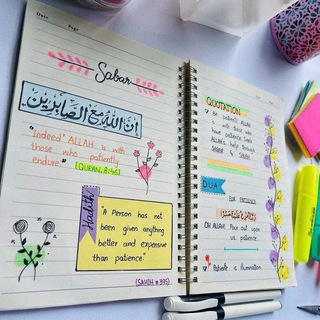 Date
Page
Sabar
إن الله مع الصابرين
"Indeed ALLAH is with
those who patiently
endure"
[QURAN, 8:46]
Hadith
"A Person has not
been given anything
better and expensive
than patience"
QUOTATION
Be patient. ALLAH
is with those who
have patience. Seek
ALLAH's help through
SABAR & SALAH.
DUA
FOR PATIENCE
OH ALLAH! Pour out upon
us patience.
Patience is illumination